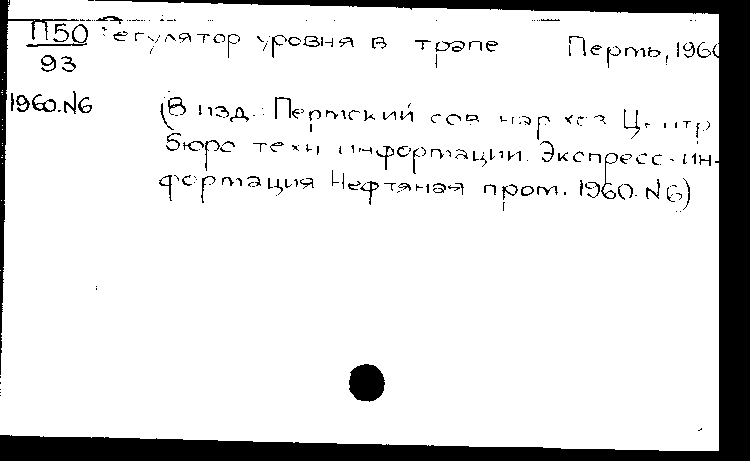 П50 Регулятор уровня в трапе Пермь, 1960
93
1960.N6 (В изд.: Пермский сов нар хоз Центр
бюро техн информации. Экспресс-ин-
формация Нефтяная пром. 1960. N6)